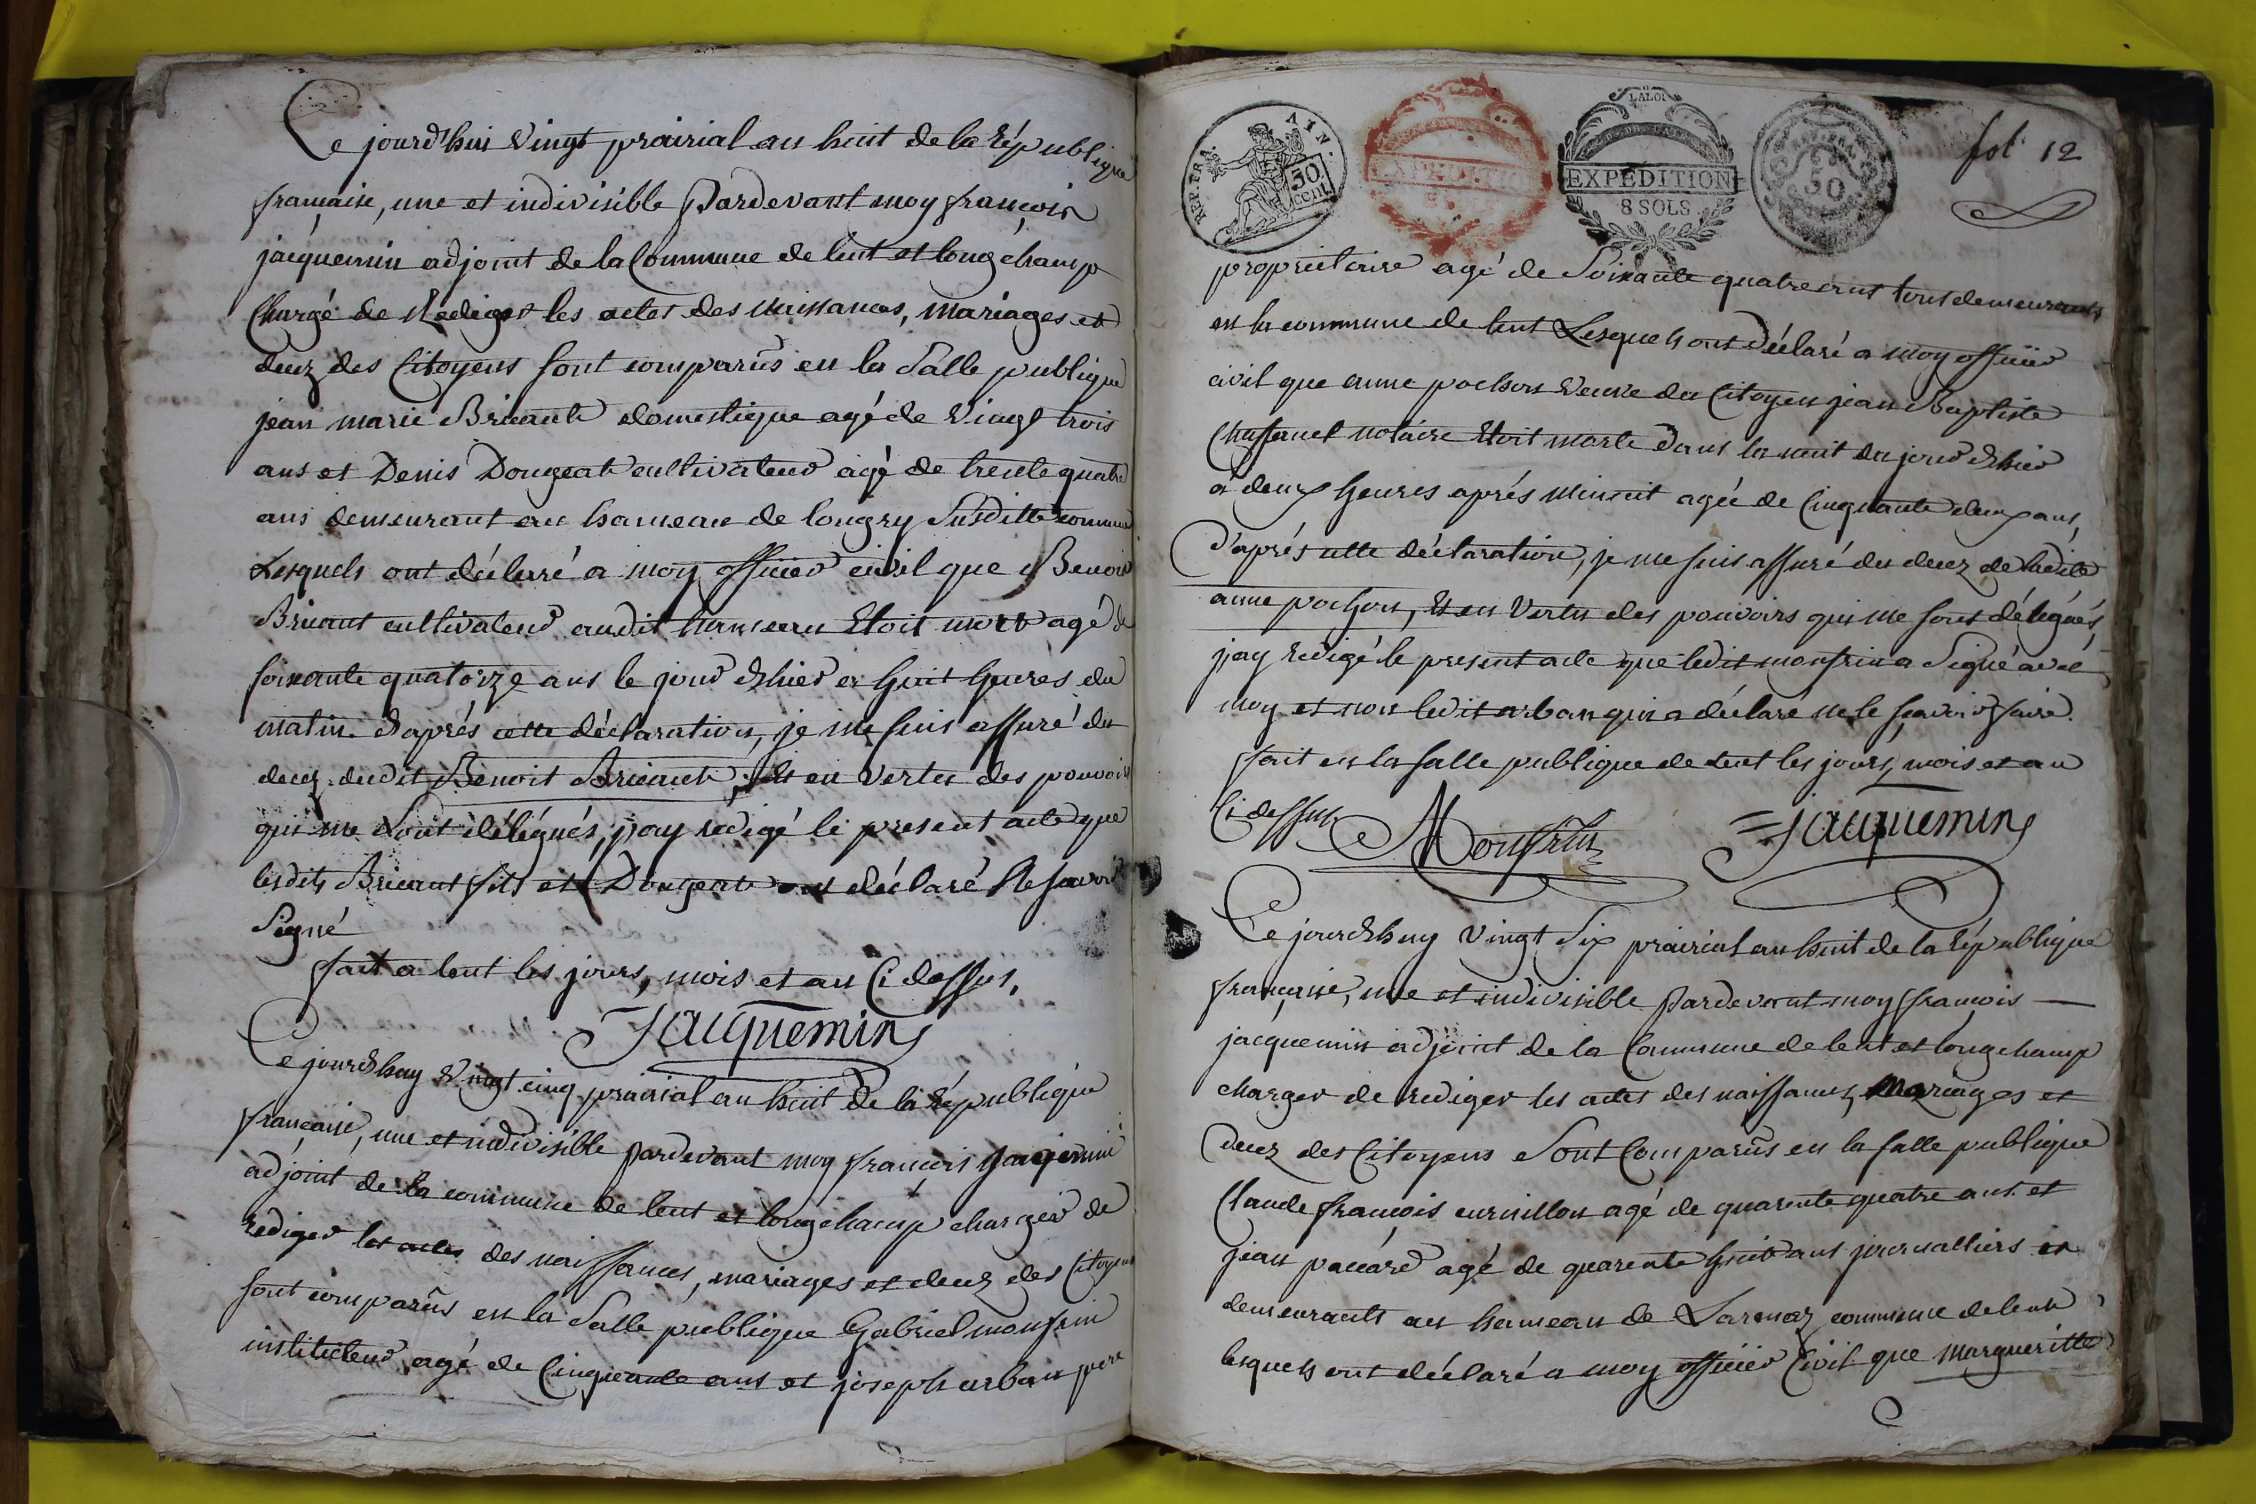 Ce jourd'hui vingt prairial an huit de la République
française, une et indivisible Pardevant moy françois
jacquemin adjoint de la Commune de lent et longchamp
Chargé de Rediger les actes des naissances, mariages et
decez des Citoyens sont comparûs en la Salle publique
jean marie Bricaut domestique agé de vingt trois
ans et Denis Dougeat cultivateur agé de trente quatre
ans demeurant au hameau de longry Susditte commune
Lesquels ont déclaré a moy officier civil que Benoit
Bricaut cultivateur audit hameau Etoit mort agé de
soixante quatorze ans le jour d'hier a huit heures du
matin. d'aprés cette déclaration, je me suis assuré du
decez dudit Benoit Bricaut, Et en vertu des pouvoirs
qui me sont délégués, j'ay redigé le present acte que
lesdits Bricaut fils et Dougeat ont déclaré Ne savoir
Signé
fait a lent les jours, mois et an Ci dessus.
Jacquemin
Ce jourd'huy vingt cinq prairial an huit de la République
française, une et indivisible pardevant moy françois jacquemin
adjoint de la commune de lent et longchamp charger de
rediger les actes des naissances, mariages et decez des Citoyens
sont comparûs en la Salle publique Gabriel monfrin
instituteur agé de Cinquante ans et joseph urban pere
REP. FRA. AIN.
50 cent.
LA LOI
EXPEDITION
8 SOLS
50
fol. 12
propriétaire agé de Soixante quatre ans tous demeurants
en la commune de lent Lesquels ont déclaré a moy officier
civil que anne pochon veuve du Citoyen jean Baptiste
Chassanel notaire Etoit morte dans la nuit du jour d'hier
a deux heures aprés Minuit agée de Cinquante deux ans,
D'aprés cette déclaration, je me suis assuré du decez de ladite
anne pochon, Et en vertu des pouvoirs qui me sont délégués,
j'ay redigé le present acte que ledit monfrin a Signé avec
moy et non ledit urban qui a déclaré ne le sçavoir faire.
fait en la salle publique de Lent les jours, mois et an
Ci dessus.
Monfrin
Jacquemin
Ce jourd'huy vingt Six prairial an huit de la République
française, une et indivisible Pardevant moy françois
jacquemin adjoint de la Commune de lent et longchamp
charger de rediger les actes des naissances, Mariages et
Decez des Citoyens Sont Comparûs en la salle publique
Claude françois curnillon agé de quarente quatre ans et
jean pacard agé de quarente huit ans journalliers et
demeurants au hameau de Larnaz commune de lent
lesquels ont déclaré a moy officier Civil que margueritte